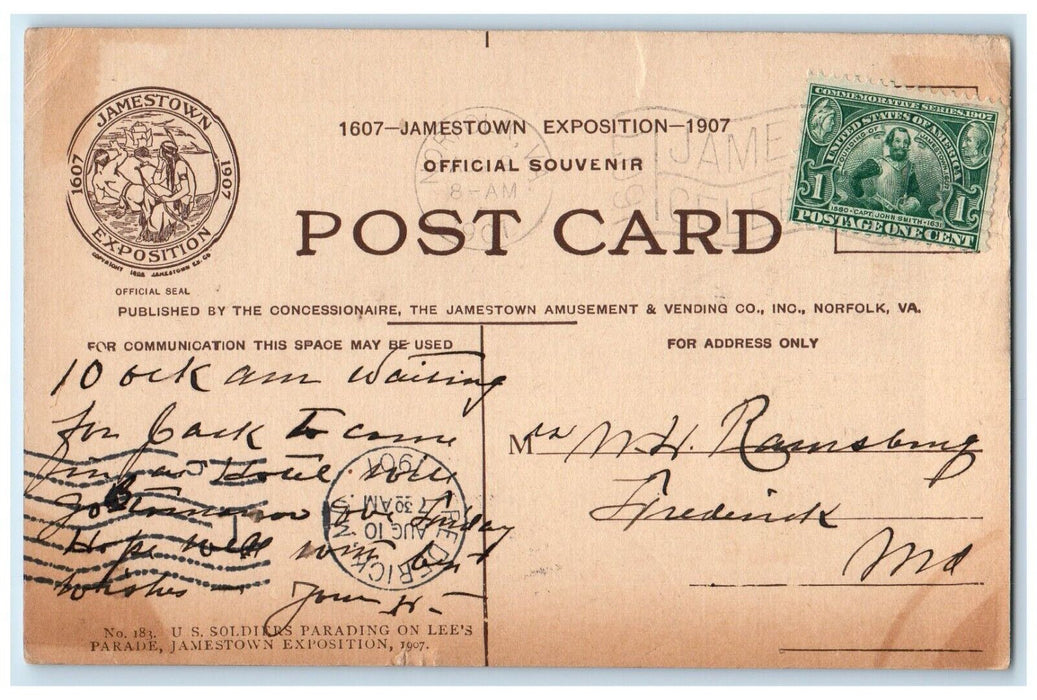 JAMESTOWN
1607
1907
EXPOSITION
COPYRIGHT 1906 JAMESTOWN EX. CO.
OFFICIAL SEAL
1607—JAMESTOWN EXPOSITION—1907
OFFICIAL SOUVENIR
POST CARD
8-AM
JAME
COMMEMORATIVE SERIES, 1907
UNITED STATES OF AMERICA
FOUNDING OF JAMESTOWN
1 1
1580 · CAPT. JOHN SMITH · 1631
POSTAGE ONE CENT
PUBLISHED BY THE CONCESSIONAIRE, THE JAMESTOWN AMUSEMENT & VENDING CO., INC., NORFOLK, VA.
FOR COMMUNICATION THIS SPACE MAY BE USED
FOR ADDRESS ONLY
10 ock am Waiting
for Jack to come
Hotel Will
go tomorrow Friday
Hope well with best
wishes — Your H—
Mrs W. H. Ramsburg
Frederick
Md
FREDERICK
AUG 10
7 30 AM
190
MD.
No. 183. U. S. SOLDIERS PARADING ON LEE'S
PARADE, JAMESTOWN EXPOSITION, 1907.